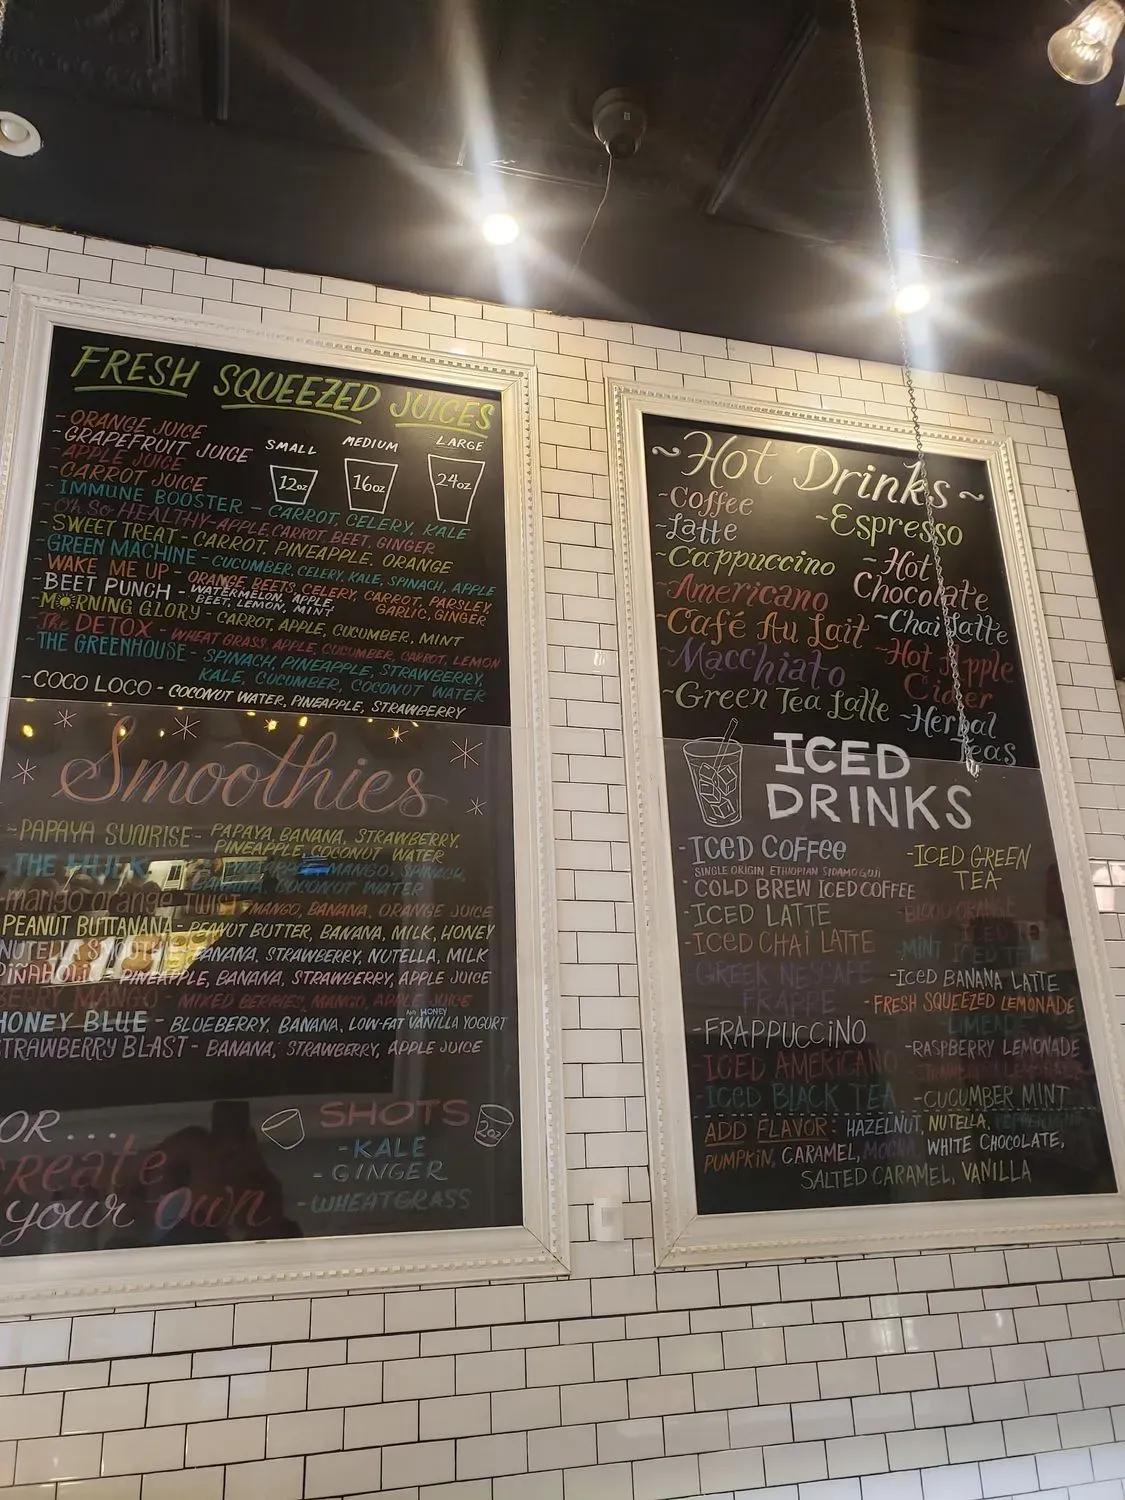 FRESH SQUEEZED JUICES
- ORANGE JUICE
- GRAPEFRUIT JUICE
- APPLE JUICE
- CARROT JUICE
SMALL
12oz
MEDIUM
16oz
LARGE
24oz
- IMMUNE BOOSTER - CARROT, CELERY, KALE
- Oh So HEALTHY - APPLE, CARROT, BEET, GINGER
- SWEET TREAT - CARROT, PINEAPPLE, ORANGE
- GREEN MACHINE - CUCUMBER, CELERY, KALE, SPINACH, APPLE
- WAKE ME UP - ORANGE, BEETS, CELERY, CARROT, PARSLEY,
GARLIC, GINGER
- BEET PUNCH - WATERMELON, APPLE,
BEET, LEMON, MINT
- MORNING GLORY - CARROT, APPLE, CUCUMBER, MINT
- The DETOX - WHEAT GRASS, APPLE, CUCUMBER, CARROT, LEMON
- THE GREENHOUSE - SPINACH, PINEAPPLE, STRAWBERRY,
KALE, CUCUMBER, COCONUT WATER
- COCO LOCO - COCONUT WATER, PINEAPPLE, STRAWBERRY
Smoothies
- PAPAYA SUNRISE - PAPAYA, BANANA, STRAWBERRY,
PINEAPPLE, COCONUT WATER
- THE HULK MANGO, SPINACH,
BANANA, COCONUT WATER
- mango orange TWIST - MANGO, BANANA, ORANGE JUICE
PEANUT BUTTANANA - PEANUT BUTTER, BANANA, MILK, HONEY
NUTELLA SMOOTHIE - BANANA, STRAWBERRY, NUTELLA, MILK
PIÑAHOLIC - PINEAPPLE, BANANA, STRAWBERRY, APPLE JUICE
BERRY MANGO - MIXED BERRIES, MANGO, APPLE JUICE
HONEY BLUE - BLUEBERRY, BANANA, LOW-FAT VANILLA YOGURT
AND HONEY
STRAWBERRY BLAST - BANANA, STRAWBERRY, APPLE JUICE
OR...
Create
your Own
SHOTS
2oz
- KALE
- GINGER
- WHEATGRASS
~Hot Drinks~
~Coffee
~Latte
~Cappuccino
~Americano
~Café Au Lait
~Macchiato
~Green Tea Latte
~Espresso
~Hot
Chocolate
~Chai Latte
~Hot Apple
Cider
~Herbal
Teas
ICED
DRINKS
- ICED COFFEE
SINGLE ORIGIN ETHIOPIAN SIDAMO GUJI
- COLD BREW ICED COFFEE
- ICED LATTE
- ICED CHAI LATTE
- GREEK NESCAFE
FRAPPE
- FRAPPUCCINO
- ICED AMERICANO
- ICED BLACK TEA
- ICED GREEN
TEA
- BLOOD ORANGE
ICED TEA
- MINT ICED TEA
- ICED BANANA LATTE
- FRESH SQUEEZED LEMONADE
- LIMEADE
- RASPBERRY LEMONADE
- STRAWBERRY LEMONADE
- CUCUMBER MINT
ADD FLAVOR: HAZELNUT, NUTELLA, PEPPERMINT
PUMPKIN, CARAMEL, MOCHA, WHITE CHOCOLATE,
SALTED CARAMEL, VANILLA